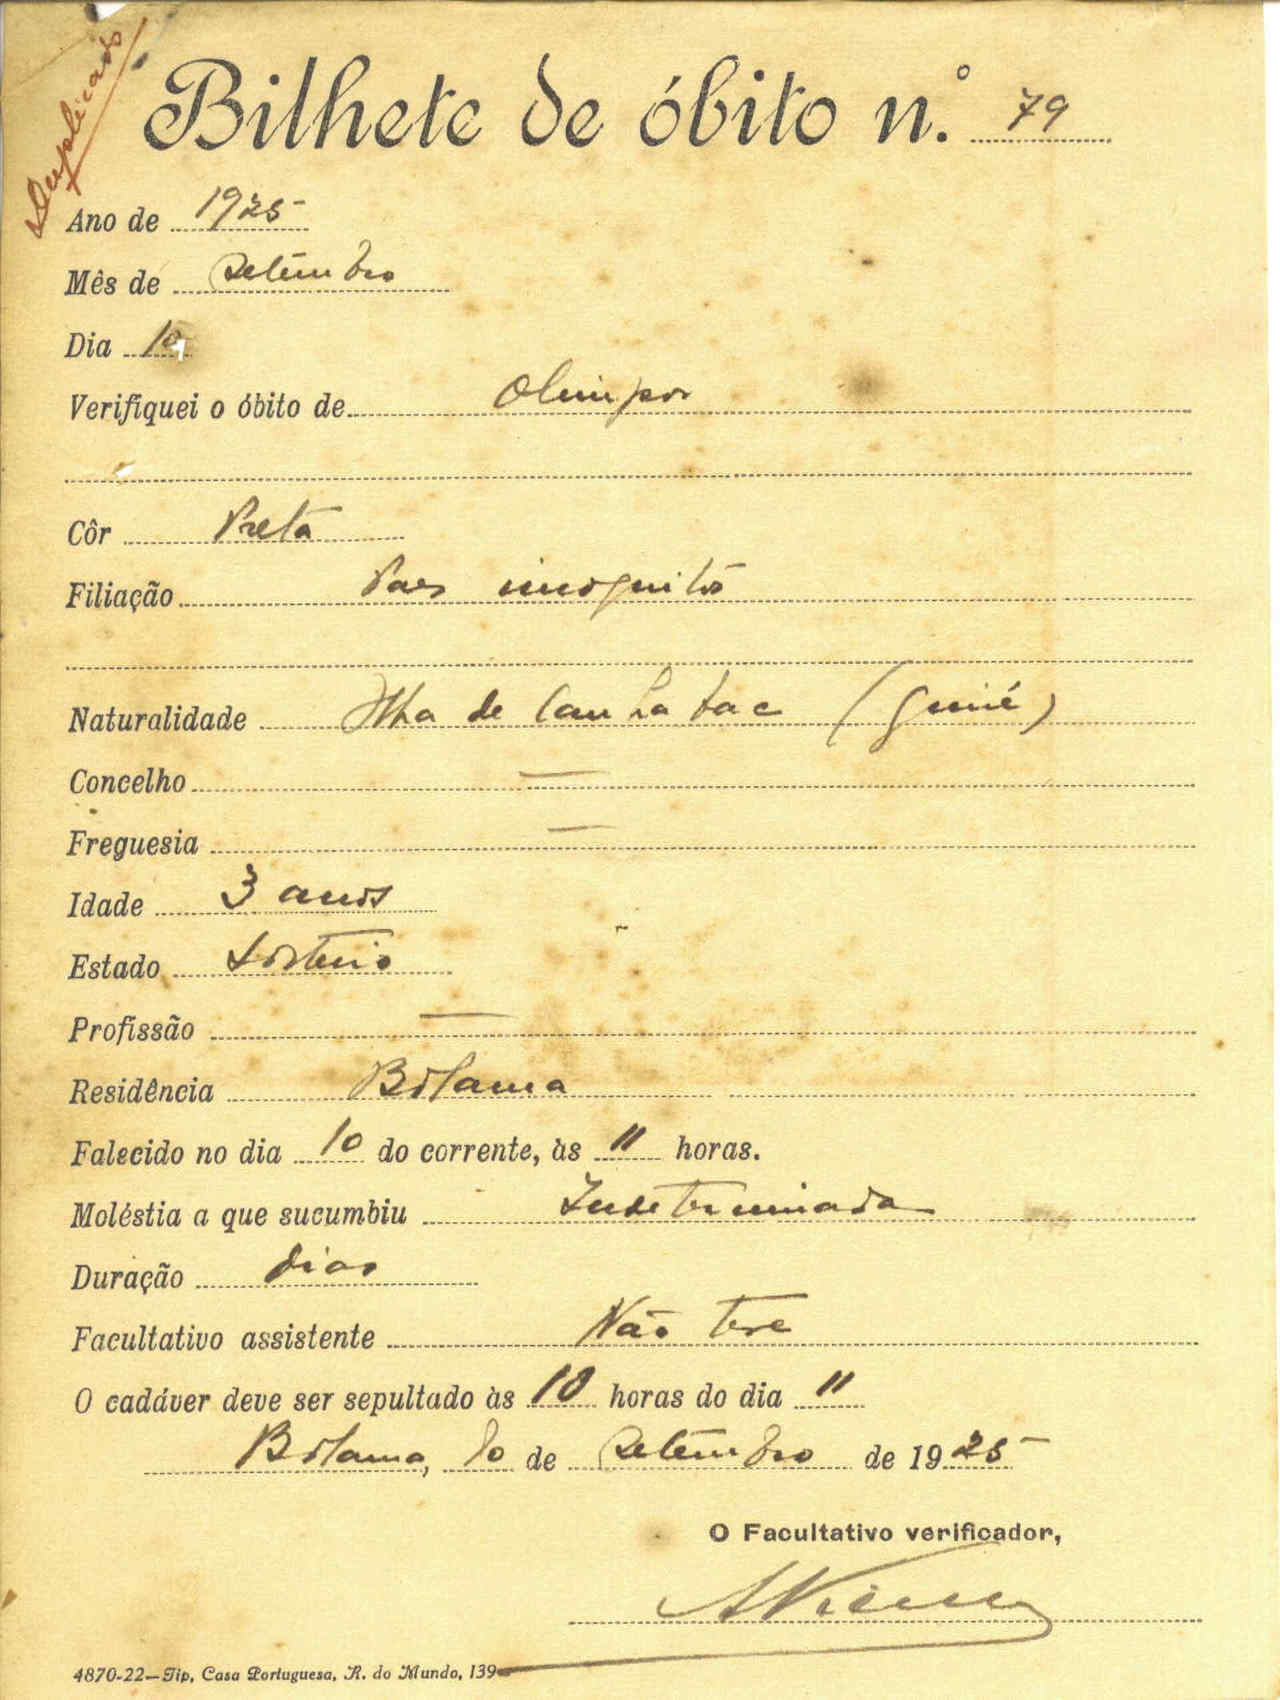 Duplicado
Bilhete de óbito n.º 79
Ano de 1925
Mês de Setembro
Dia 10
Verifiquei o óbito de Olimpor
Côr Preta
Filiação Paes incognitos
Naturalidade Ilha de Canhabac (Guiné)
Concelho —
Freguesia —
Idade 3 anos
Estado Solteiro
Profissão —
Residência Bolama
Falecido no dia 10 do corrente, às 11 horas.
Moléstia a que sucumbiu Indeterminada
Duração dias
Facultativo assistente Não teve
O cadáver deve ser sepultado às 10 horas do dia 11
Bolama, 10 de Setembro de 1925
O Facultativo verificador,
4870-22—Tip. Casa Portuguesa, R. do Mundo, 139